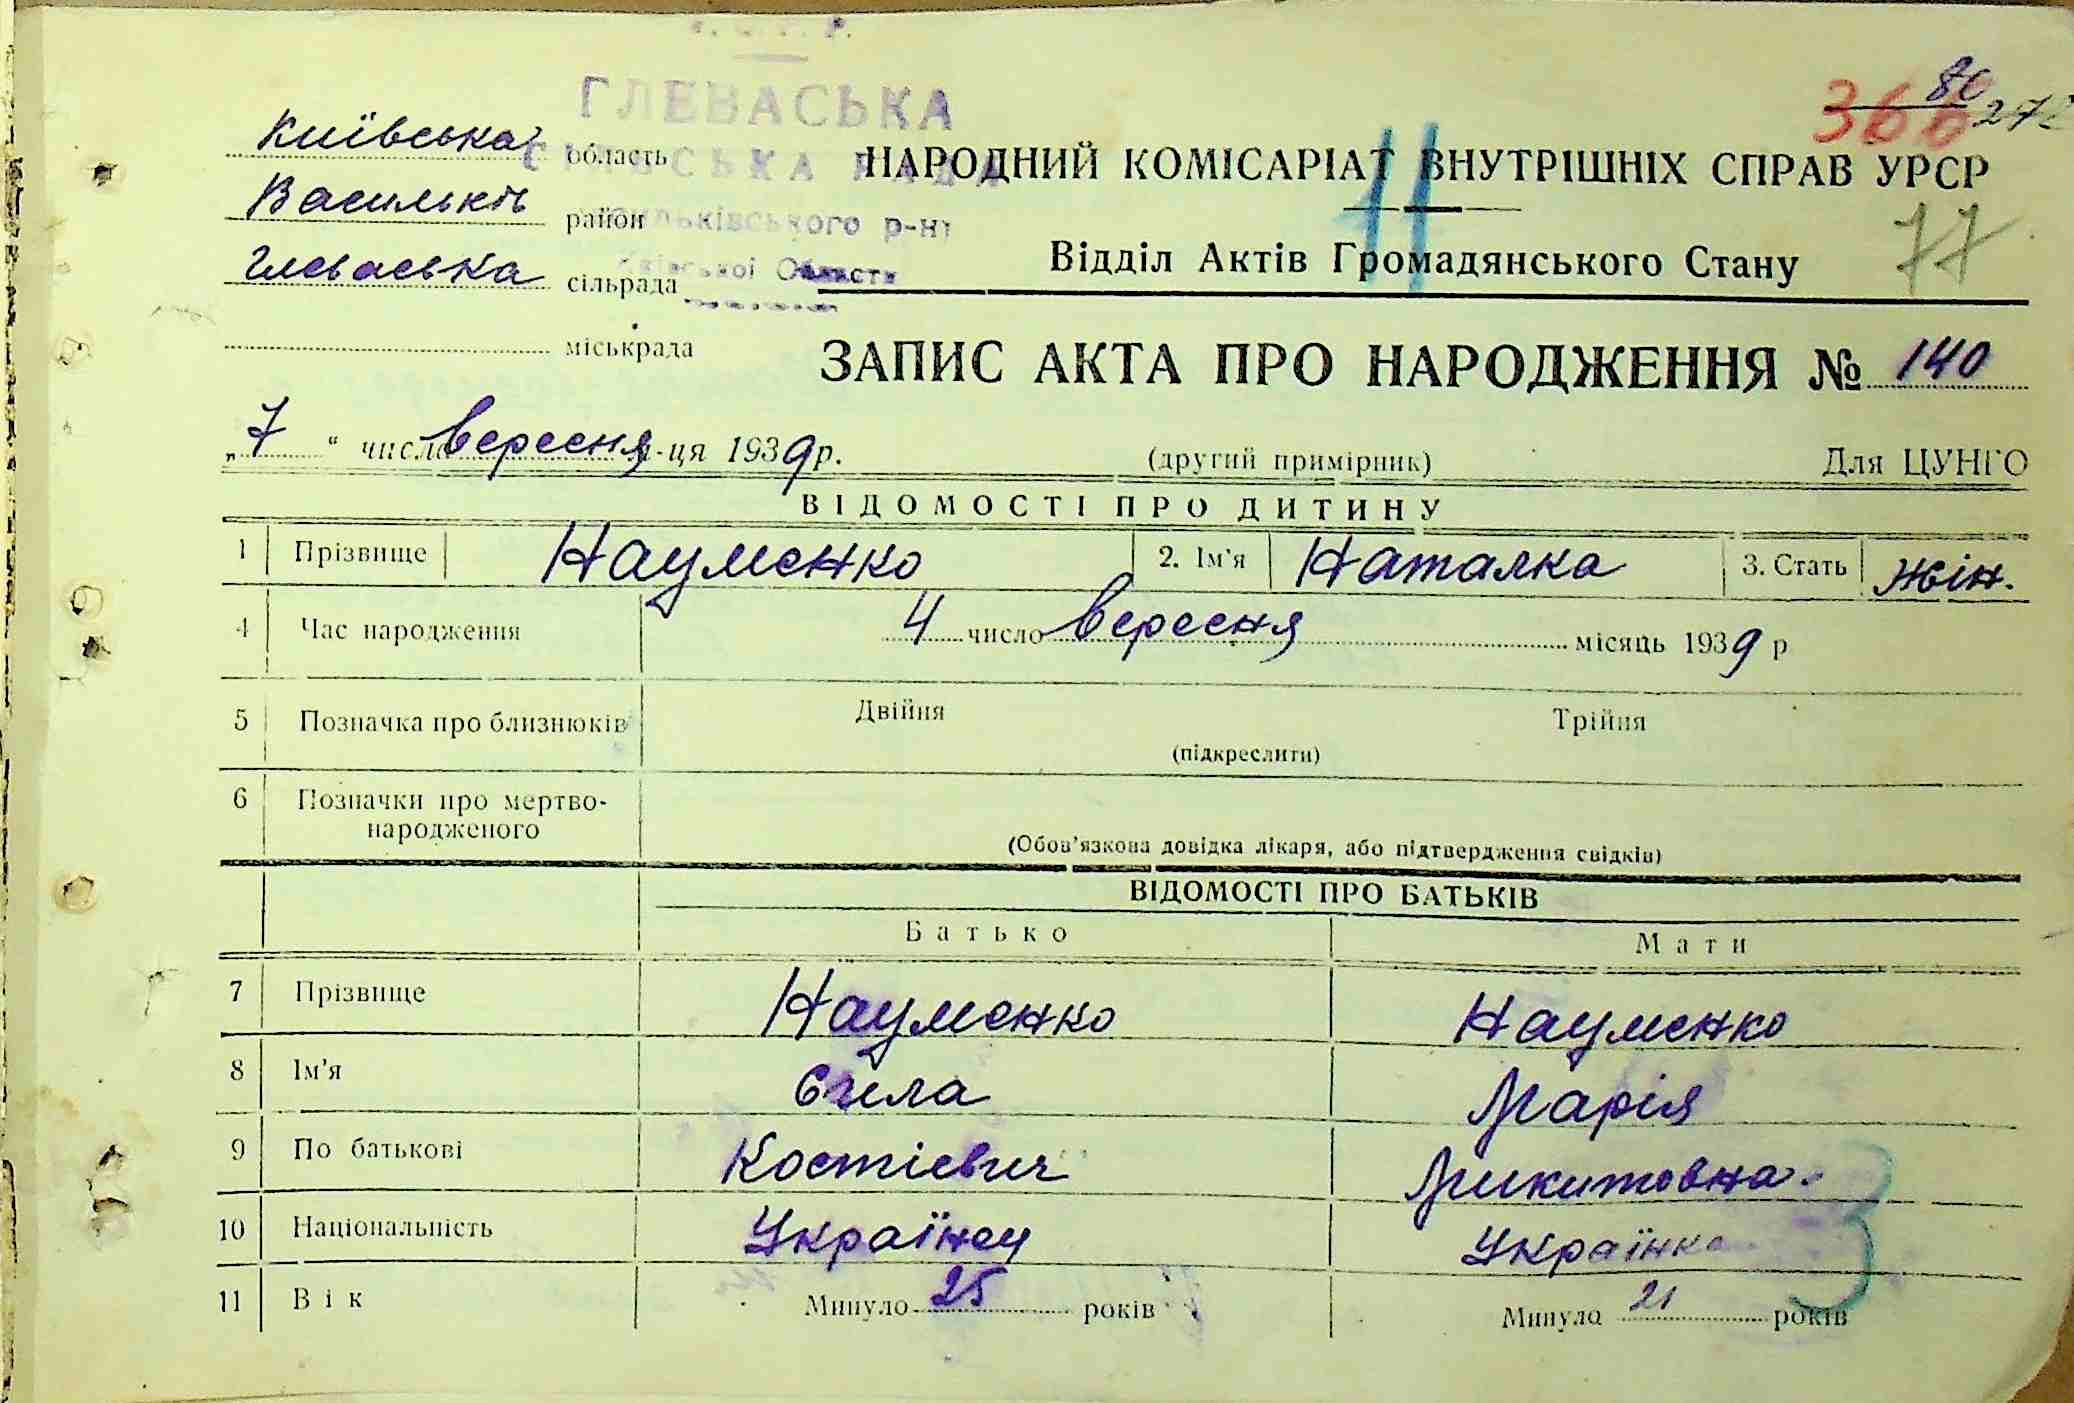 ГЛЕВАСЬКА
СІЛЬСЬКА РАДА
р-ну
Області
80
366
272
11
77
Київська область
Васильків район
Глеваська сільрада
міськрада
НАРОДНИЙ КОМІСАРІАТ ВНУТРІШНІХ СПРАВ УРСР
Відділ Актів Громадянського Стану
ЗАПИС АКТА ПРО НАРОДЖЕННЯ № 140
„7“ число вересня м-ця 1939 р. (другий примірник) Для ЦУНГО
ВІДОМОСТІ ПРО ДИТИНУ
1 Прізвище Науменко 2. Ім'я Наталка 3. Стать жін.
4 Час народження 4 число вересня місяць 1939 р
5 Позначка про близнюків Двійня Трійня
(підкреслити)
6 Позначки про мертво-
народженого
(Обов'язкова довідка лікаря, або підтвердження свідків)
ВІДОМОСТІ ПРО БАТЬКІВ
Батько Мати
7 Прізвище Науменко Науменко
8 Ім'я Марія
9 По батькові Костієвич Микитовна.
10 Національність Українец Українка
11 Вік Минуло 25 років Минуло 21 років
3